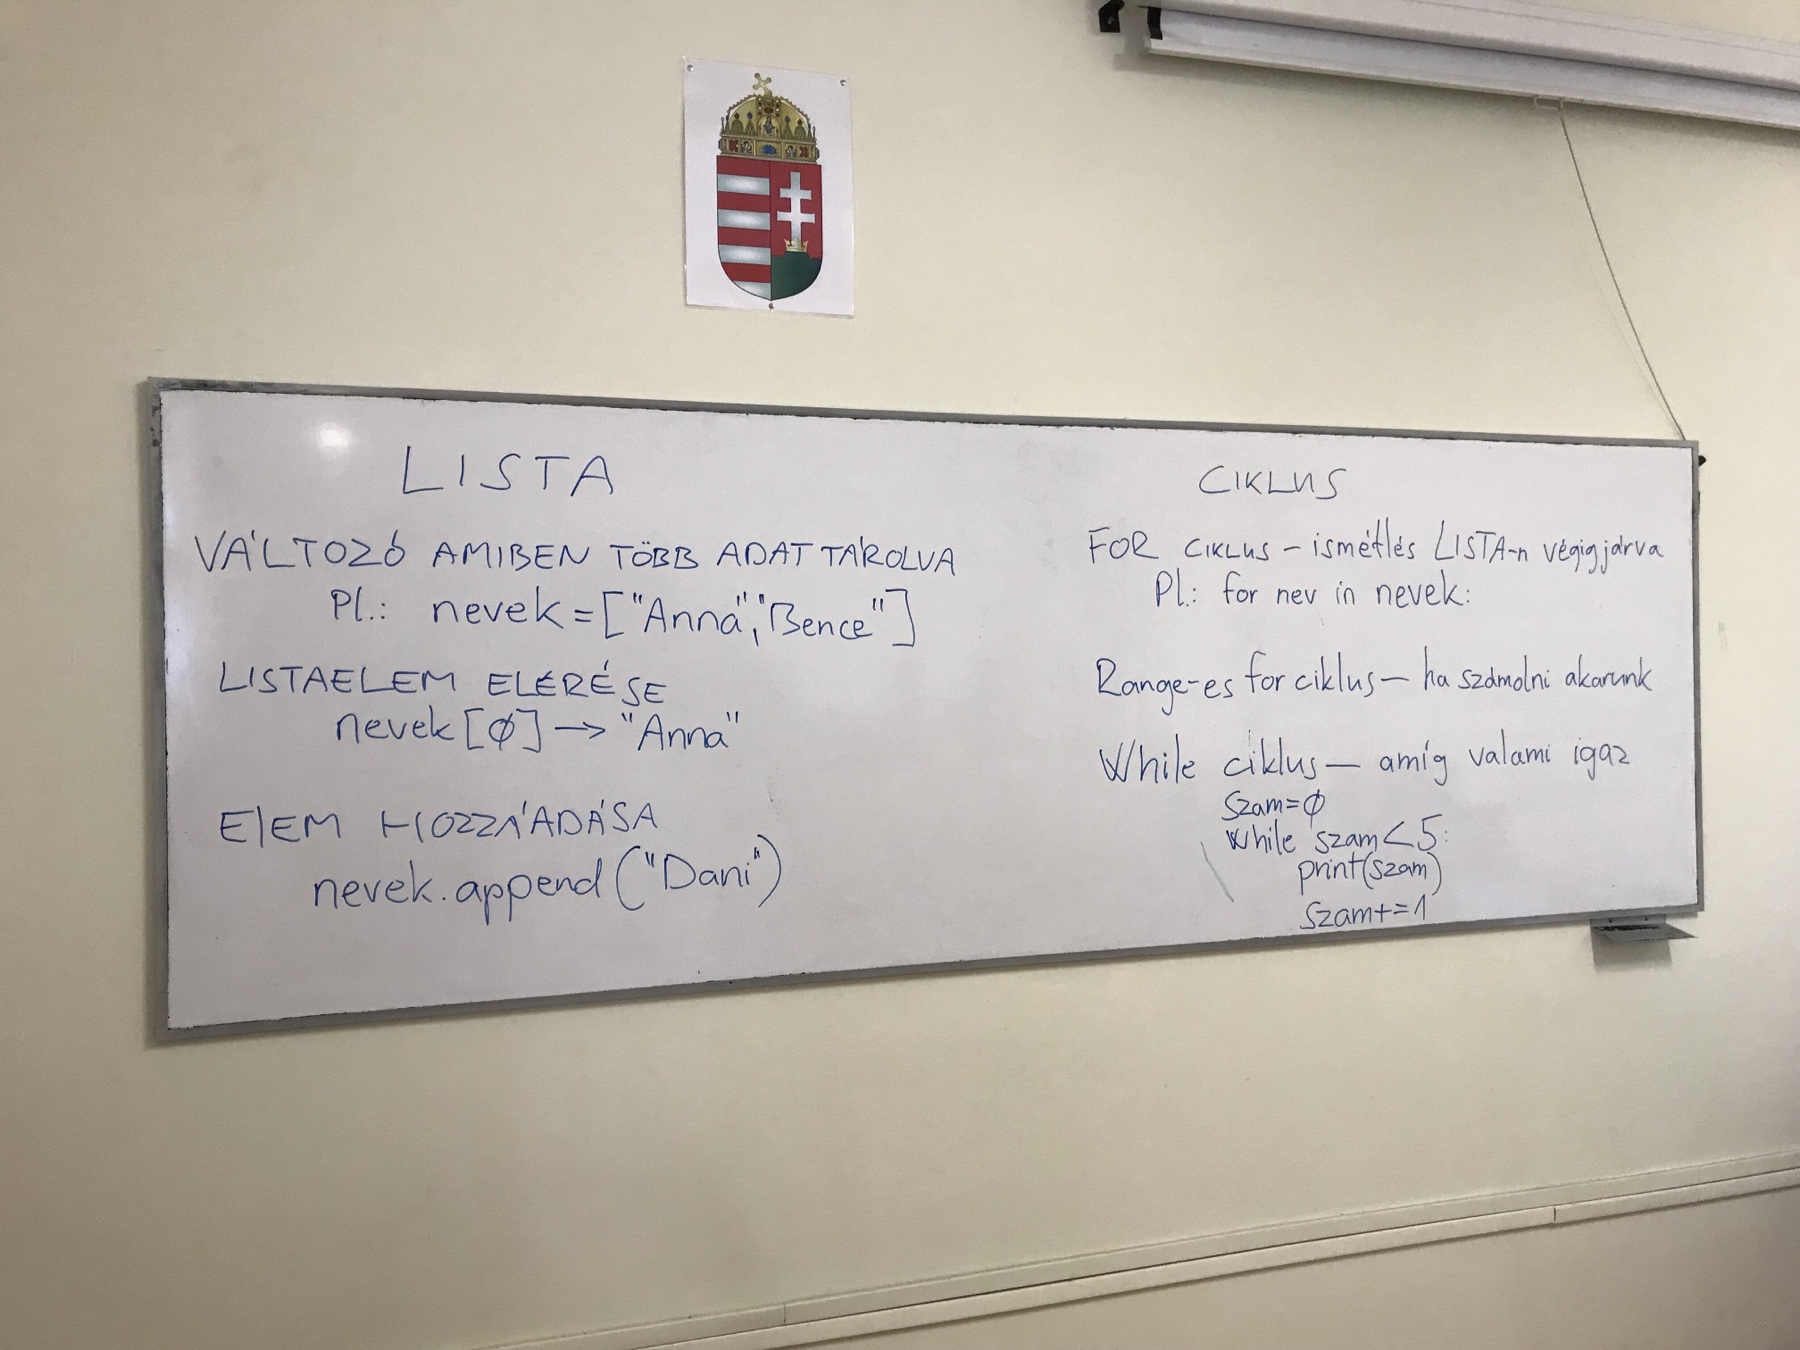 LISTA
VÁLTOZÓ AMIBEN TÖBB ADAT TÁROLVA
Pl.: nevek=["Anna","Bence"]
LISTAELEM ELÉRÉSE
nevek[0] → "Anna"
ElEM HOZZÁADÁSA
nevek.append("Dani")
CIKLUS
FOR CIKLUS – ismétlés LISTA-n végigjárva
Pl.: for nev in nevek:
Range-es for ciklus – ha számolni akarunk
While ciklus – amíg valami igaz
szam=0
While szam<5:
print(szam)
szam+=1